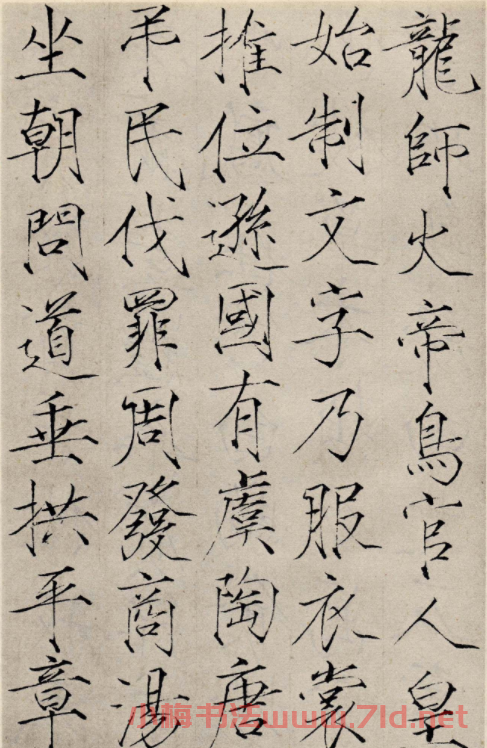 龍師火帝鳥官人皇
始制文字乃服衣裳
推位遜國有虞陶唐
弔民伐罪周發商湯
坐朝問道垂拱平章
小梅书法www.7ld.net